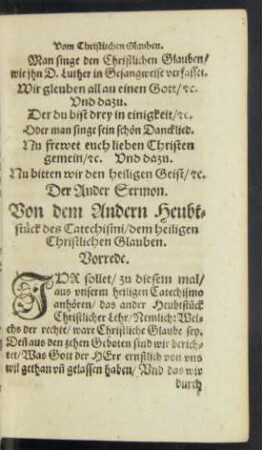 Vom Christlichen Glauben.
Man singe den Christlichen Glauben/
wie jhn D. Luther in Gesangweise verfasset.
Wir gleuben all an einen Gott/ ꝛc.
Vnd dazu.
Der du bist drey in einigkeit/ ꝛc.
Oder man singe sein schön Dancklied.
Nu frewet euch lieben Christen
gemein/ ꝛc. Vnd dazu.
Nu bitten wir den heiligen Geist/ ꝛc.
Der Ander Sermon.
Von dem Andern Heubt-
stück des Catechismi/ dem heiligen
Christlichen Glauben.
Vorrede.
IHR sollet/ zu diesem mal/
aus vnserm heiligen Catechismo
anhören/ das ander Heubtstück
Christlicher Lehr/ Nemlich: Wel-
chs der rechte/ ware Christliche Glaube sey.
Deñ aus den zehen Geboten sind wir berich-
tet/ Was Gott der HErr ernstlich von vns
wil gethan vñ gelassen haben/ Vnd das wir
durch